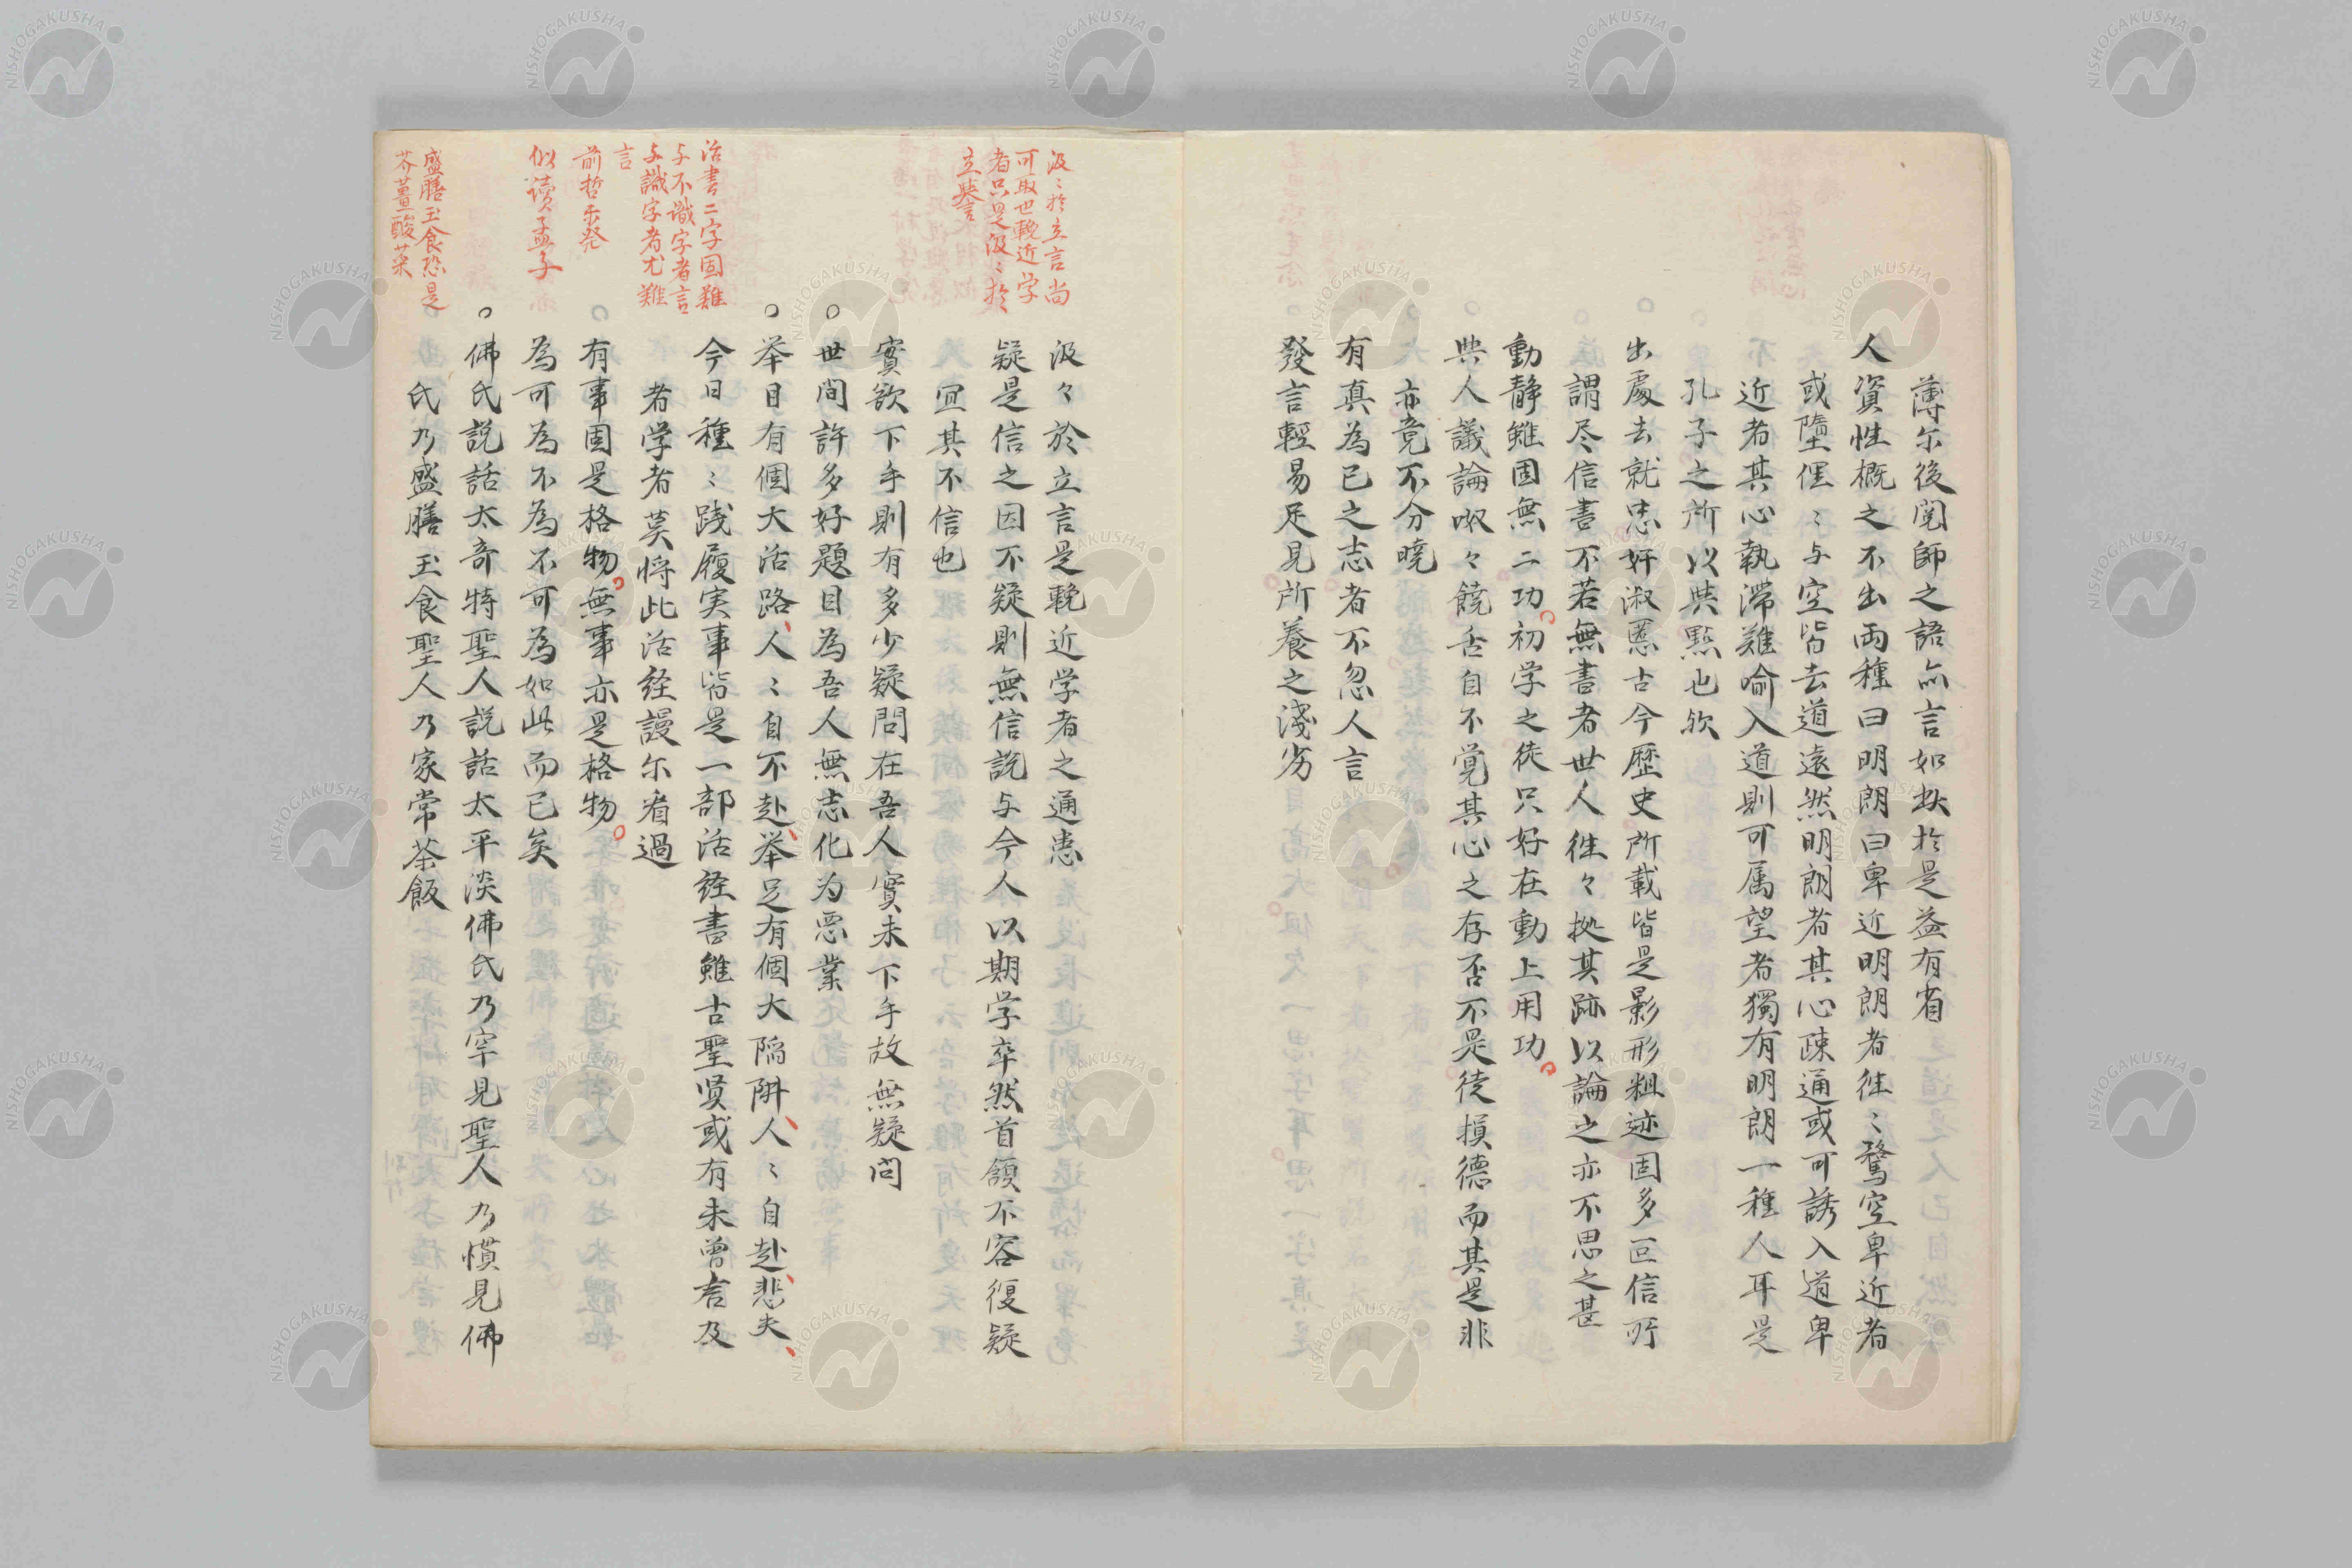 薄尓後閲師之語亦言如此於是益有省
人資性概之不出両種曰明朗曰卑近明朗者往〻騖空卑近者
或墮俚〻与空皆去道遠然明朗者其心疎通或可誘入道卑
近者其心執滞難喻入道則可属望者獨有明朗一種人耳是
孔子之所以與點也欤
出處去就忠奸淑慝古今歴史所載皆是影形粗迹固多叵信所
謂尽信書不若無書者世人往々拠其跡以論之亦不思之甚
動静雖固無二功初学之徒只好在動上用功
與人議論呶々饒舌自不覚其心之存否不是徒損德而其是非
亦竟不分曉
有真為己之志者不忽人言
發言輕易足見所養之淺劣
汲〻於立言尚
可取也輓近学
者只是汲〻於
立譽言
汲々於立言是輓近学者之通患
疑是信之因不疑則無信説与今人以期学卒然首領不容復疑
宜其不信也
實欲下手則有多少疑問在吾人實未下手故無疑問
世間許多好題目為吾人無志化为惡業
举目有個大活路人〻自不赴举足有個大陥阱人〻自赴悲夫
活書二字固難
与不識字者言
与識字者尤難
言
今日種〻践履実事皆是一部活経書雖古聖贤或有未曾言及
者学者莫将此活経謾尓看過
前哲未発
有事固是格物無事亦是格物
似读孟子
為可為不為不可為如此而已矣
佛氏説話太奇特聖人説話太平淡佛氏乃罕見聖人乃慣見佛
盛膳玉食恐是
芥薑酸菜
氏乃盛膳玉食聖人乃家常茶飯